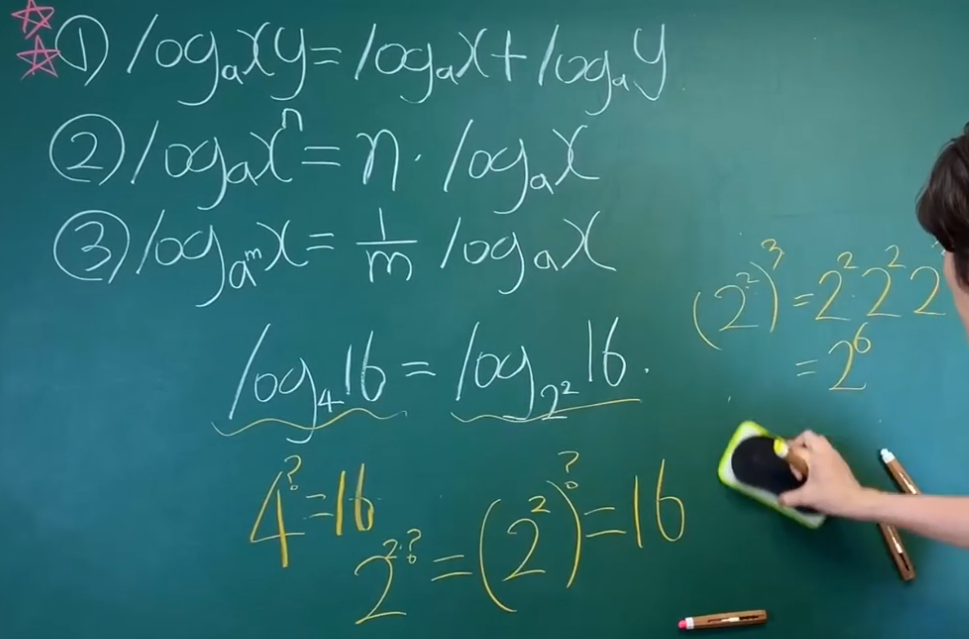 ① logₐxy = logₐx + logₐy
② logₐxⁿ = n · logₐx
③ log_{a^m} x = 1/m logₐx
(2²)³ = 2² · 2² 2
= 2⁶
log₄16 = log_{2²} 16.
4^? = 16
2^{2·?} = (2²)^? = 16